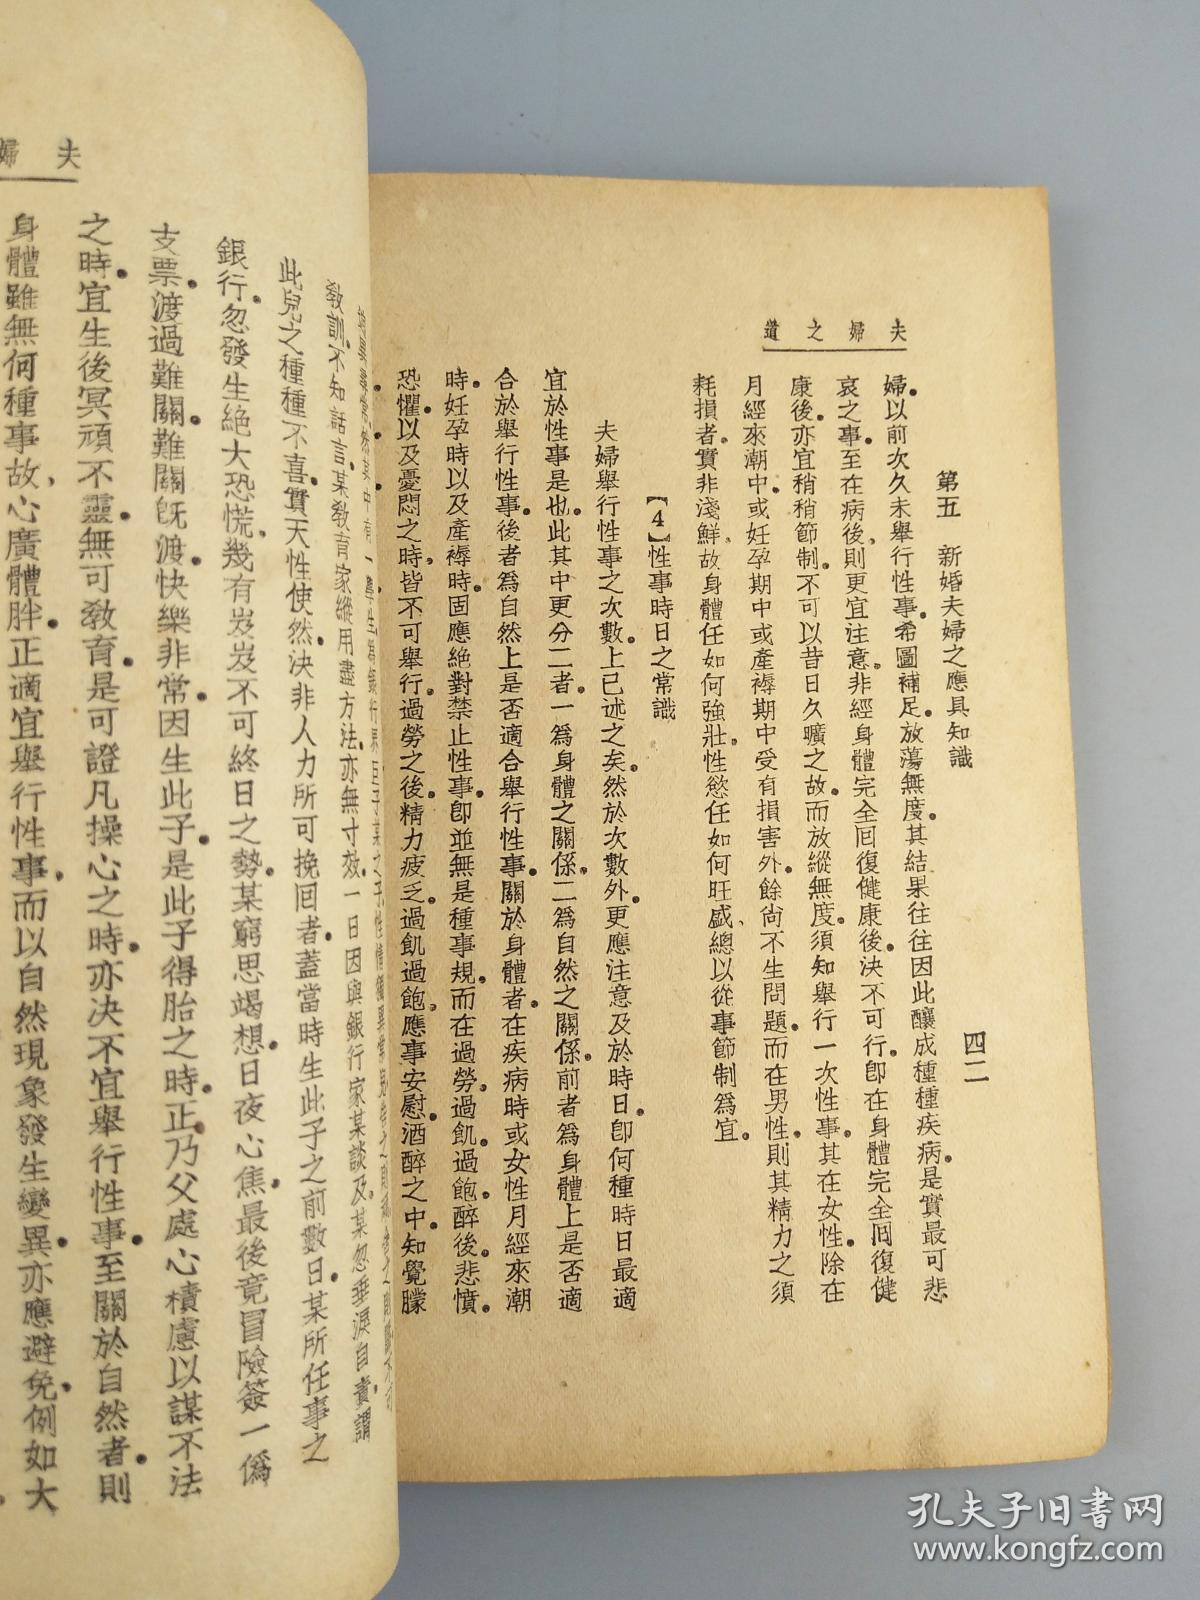 夫婦之道
第五　新婚夫婦之應具知識
四二
婦。以前次久未舉行性事。希圖補足。放蕩無度。其結果往往因此釀成種種疾病。是實最可悲
哀之事。至在病後、則更宜注意。非經身體完全囘復健康後。決不可行。卽在身體完全囘復健
康後。亦宜稍稍節制。不可以昔日久曠之故。而放縱無度。須知舉行一次性事。其在女性。除在
月經來潮中。或妊孕期中或產褥期中受有損害外。餘尙不生問題。而在男性。則其精力之須
耗損者。實非淺鮮。故身體任如何強壯。性慾任如何旺盛、總以從事節制爲宜。
【4】性事時日之常識
夫婦舉行性事之次數。上已述之矣。然於次數外。更應注意及於時日。卽何種時日最適
宜於性事是也。此其中更分二者。一爲身體之關係。二爲自然之關係。前者爲身體上是否適
合於舉行性事。後者爲自然上是否適合舉行性事。關於身體者。在疾病時或女性月經來潮
時。妊孕時以及產褥時。固應絕對禁止性事。卽並無是種事規。而在過勞。過飢。過飽。醉後。悲憤。
恐懼。以及憂悶之時。皆不可舉行。過勞之後。精力疲乏。過飢過飽。應事安慰。酒醉之中。知覺朦
夫婦
敎訓。不知話言。某敎育家縱用盡方法。亦無寸效。一日因與銀行家某談及。某忽垂淚自責。謂
此兒之種種不喜。實天性使然。決非人力所可挽囘者。蓋當時生此子之前數日。某所任事之
銀行。忽發生絕大恐慌。幾有岌岌不可終日之勢。某窮思竭想。日夜心焦。最後竟冒險簽一僞
支票。渡過難關。難關旣渡。快樂非常。因生此子。是此子得胎之時。正乃父處心積慮以謀不法
之時。宜生後冥頑不靈。無可敎育。是可證凡操心之時。亦決不宜舉行性事。至關於自然者。則
身體雖無何種事故。心廣體胖。正適宜舉行性事。而以自然現象發生變異。亦應避免。例如大
孔夫子旧书网
www.kongfz.com